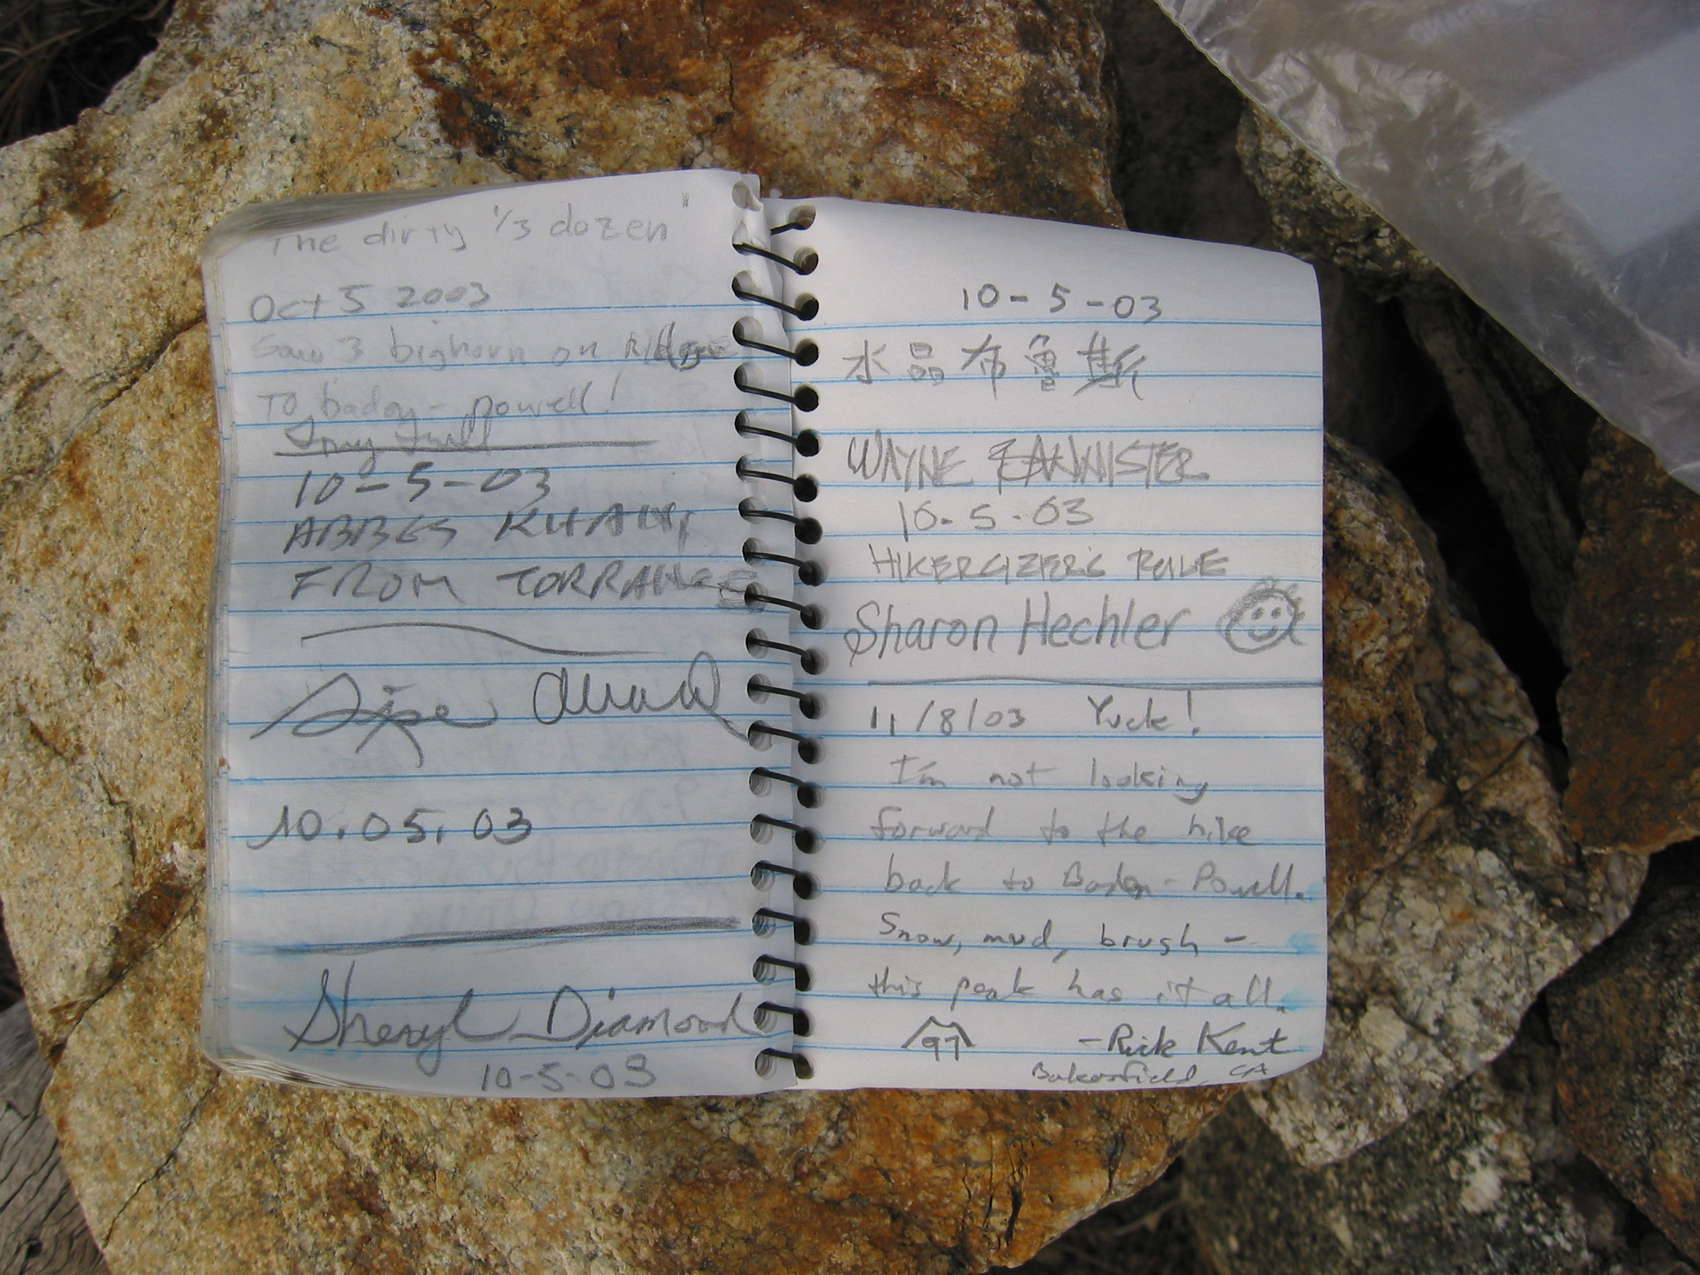 The dirty 1/3 dozen"
Oct 5 2003
Saw 3 bighorn on Ridge
To baden-powell!
10-5-03
ABBES KHANI
FROM TORRANCE
10.05.03
Sheryl Diamond
10-5-03
10-5-03
水晶布魯斯
WAYNE BANNISTER
10.5.03
HIKERCIZERS RULE
Sharon Hechler
11/8/03 Yuck!
I'm not looking
forward to the hike
back to Baden-Powell.
Snow, mud, brush -
this peak has it all.
97 -Rick Kent
Bakersfield, CA